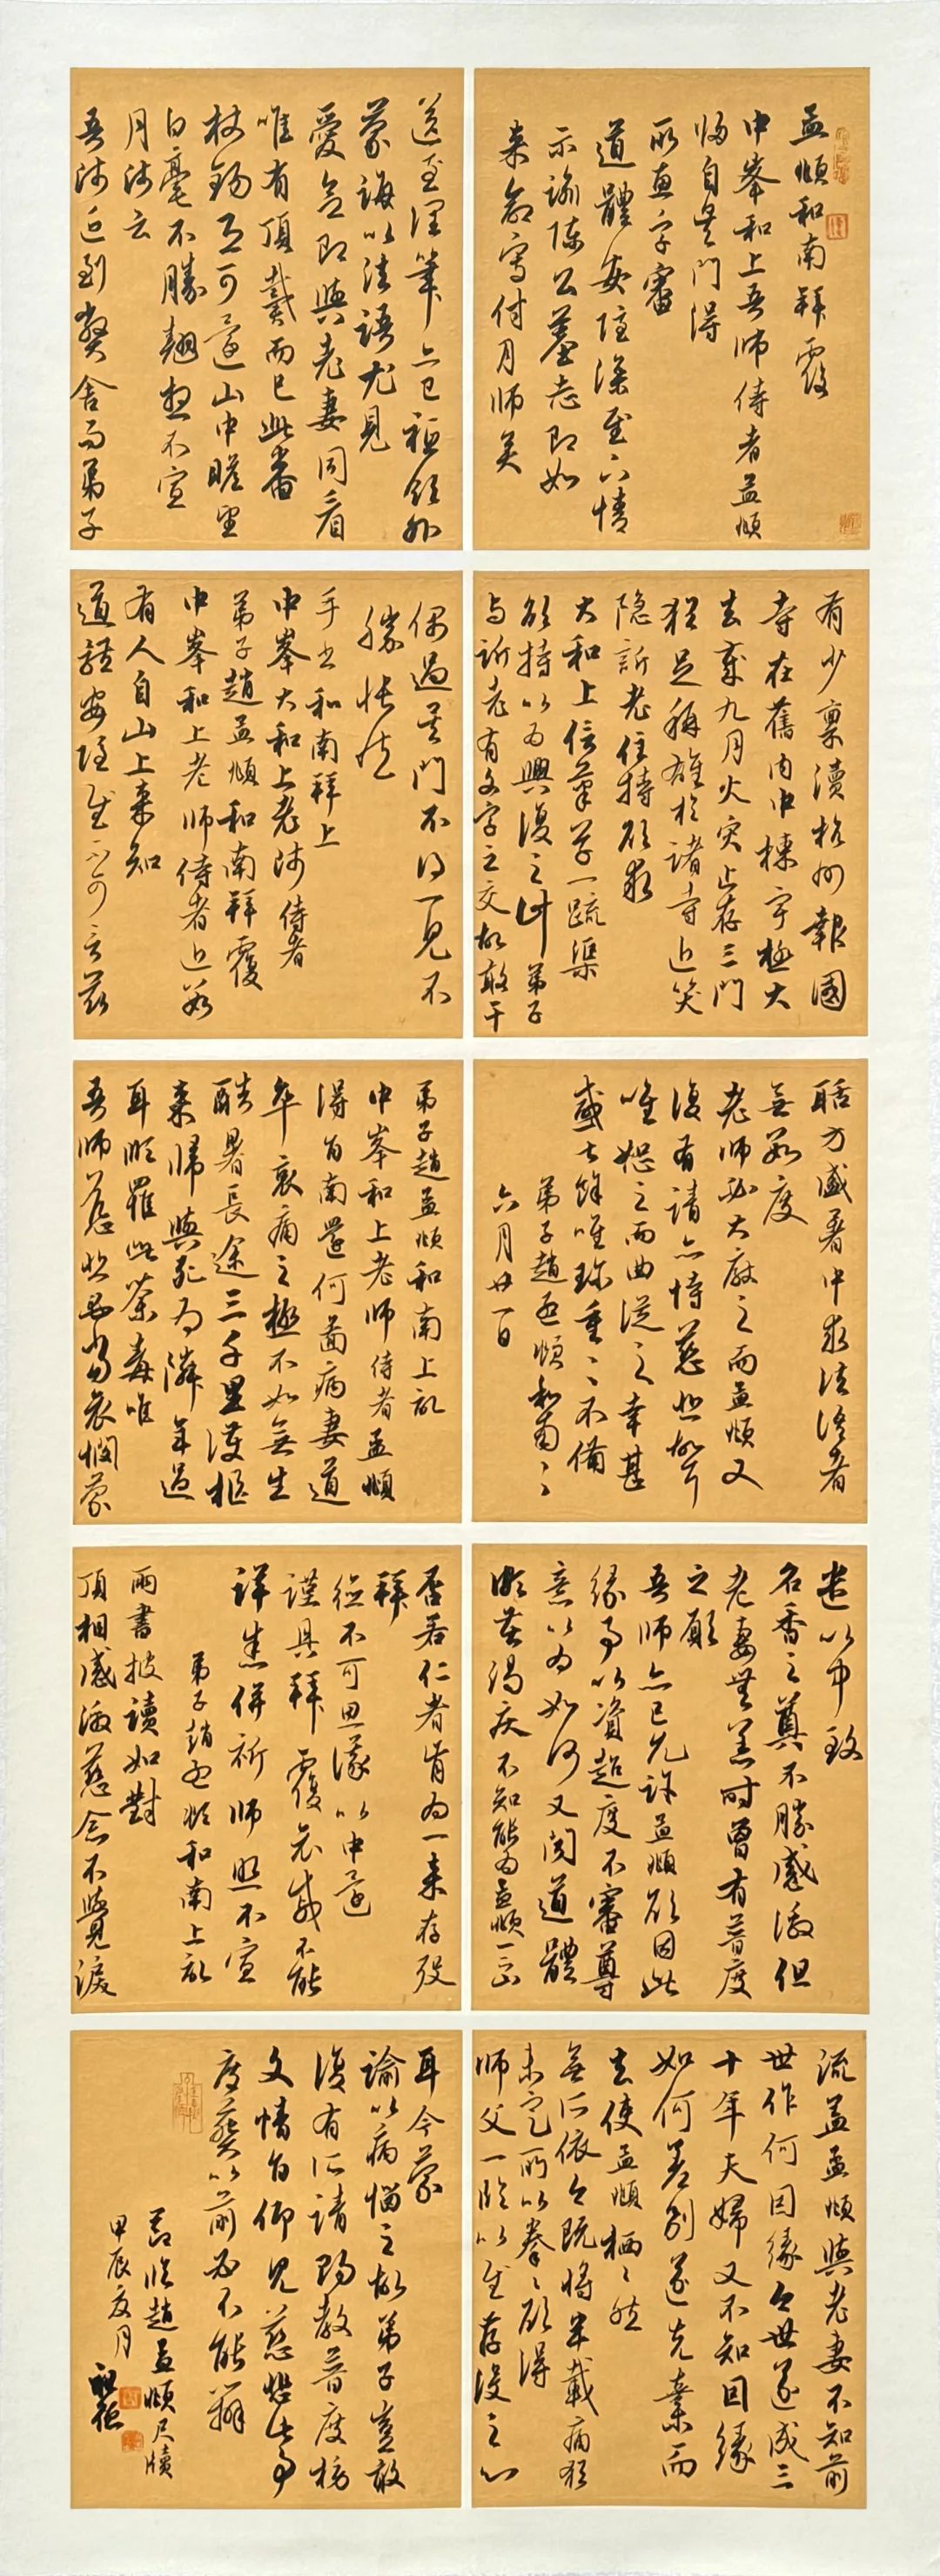 孟頫和南拜覆
中峯和上吾師侍者孟頫
歸自吴門得
所惠字審
道體安隱深慰下情
示諭陳公墓志即如
来命寫付月師矣
送至潤筆亦已祗領外
蒙誨以法語尤見
愛念即與老妻同看
唯有頂戴而已此番
杖錫又可還山中瞻望
白毫不勝翹想不宣
月師云
吾師近到弊舍而弟子
有少禀瀆杭州報國
寺在舊内中棟宇極大
去歲九月火灾止存三門
猶足稱雄於諸寺近笑
隐訢老住持欲求
大和上信筆草一疏渠
欲持以爲興復之計弟子
与訢老有文字之交故敢干
偶過吴門不得一見不
勝悵然
手书和南拜上
中峯大和上老师侍者
弟子趙孟頫和南拜覆
中峯和上老师侍者近數
有人自山上来知
道體安隱慰不可言兹
聒方盛暑中求法语者
無數度
老師必大厭之而孟頫又
復有請亦恃慈悲故耳
唯恕之而曲從之幸甚
盛暑唯珍重珍重不備
弟子趙孟頫和南
六月廿一日
弟子趙孟頫和南上記
中峯和上老师侍者孟頫
得旨南還何啚病妻道
卒哀痛之極不如無生
酷暑長途三千里護柩
来歸與死爲隣年過
耳順罹此荼毒唯
吾师慈悲必當哀憫蒙
遣以中致
名香之奠不勝感激但
老妻無恙時曾有普度
之願
吾师亦已允許孟頫欲因此
緣事以資超度不審尊
意以爲如何又聞道體
頗苦渴疾不知能爲孟頫一
否若仁者肯爲一来存殁
拜
德不可思議以中還
謹具拜覆哀感不能
詳悉併祈师照不宣
弟子趙孟頫和南上記
兩書披讀如對
頂相感激慈念不覺淚
流蓋孟頫與老妻不知前
世作何因缘今世遂成三
十年夫婦又不知因緣
如何差别遂先棄而
去使孟頫栖栖然
無所依今既將半載痛猶
未定所以拳拳欲得
师父一临以慰存没之心
耳今蒙
諭以病惱之故弟子豈敢
復有所請賜教普度榜
文情旨仰見慈悲此事
度葬以前必不能辦
節临趙孟頫尺牘
甲辰夏月